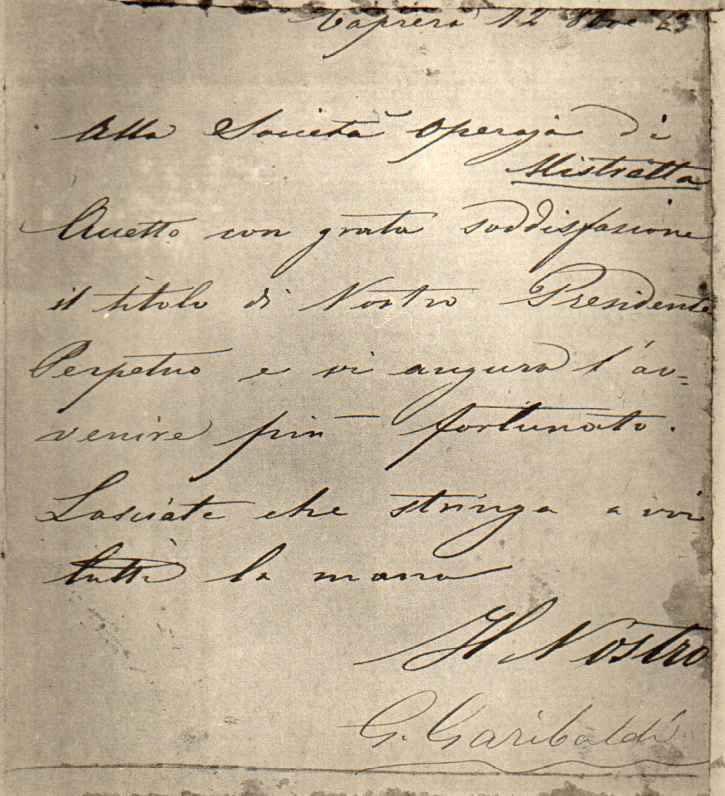 Caprera 12 8bre 63
Alla Società Operaja di
Mistretta
Accetto con grata soddisfazione
il titolo di Vostro Presidente
Perpetuo e vi auguro l'av=
venire più fortunato.
Lasciate che stringa a voi
tutti la mano
Il Vostro
G. Garibaldi